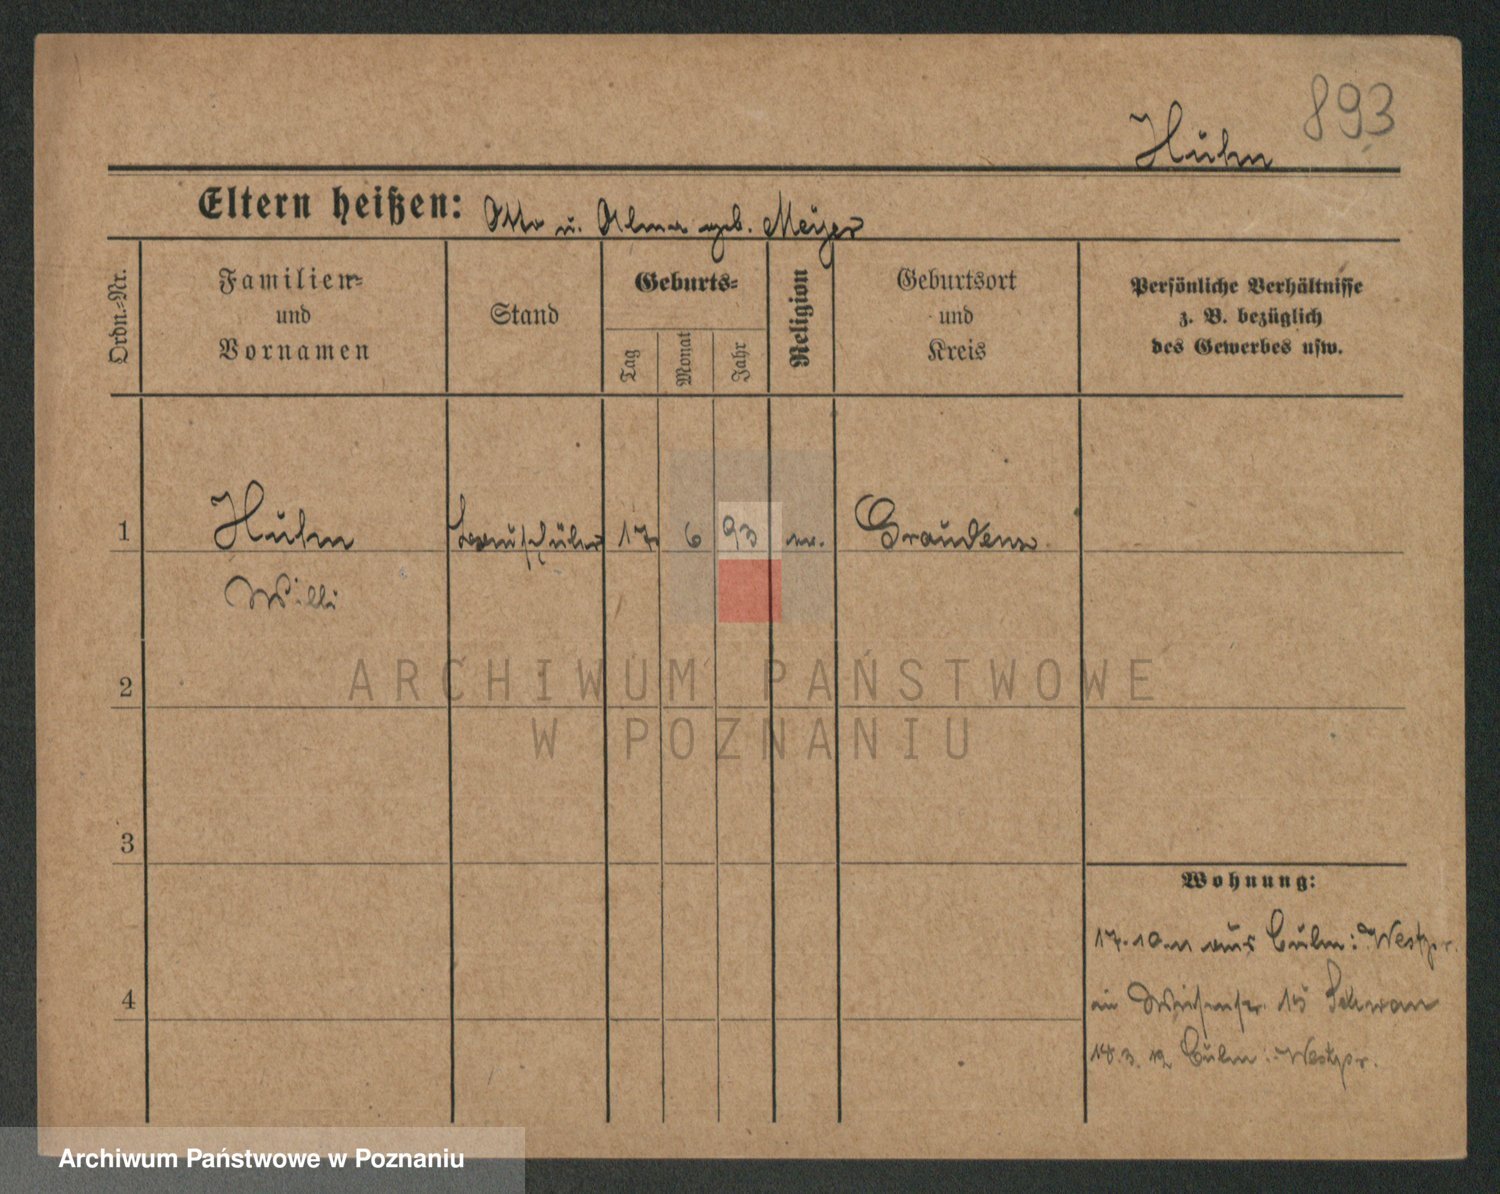 893
Huhn
Eltern heißen: Otto u. Alma geb. Meyer
Ordn.-Nr.
Familien-
und
Vornamen
Stand
Geburts-
Tag
Monat
Jahr
Religion
Geburtsort
und
Kreis
Persönliche Verhältnisse
z. B. bezüglich
des Gewerbes usw.
1 Huhn Bauschüler 17 6 93 ev. Graudenz
Willi
2
3
4
Wohnung:
17.10.11 aus Culm: Westpr.
in 15
18.3.12 Culm: Westpr.
ARCHIWUM PAŃSTWOWE
W POZNANIU
Archiwum Państwowe w Poznaniu